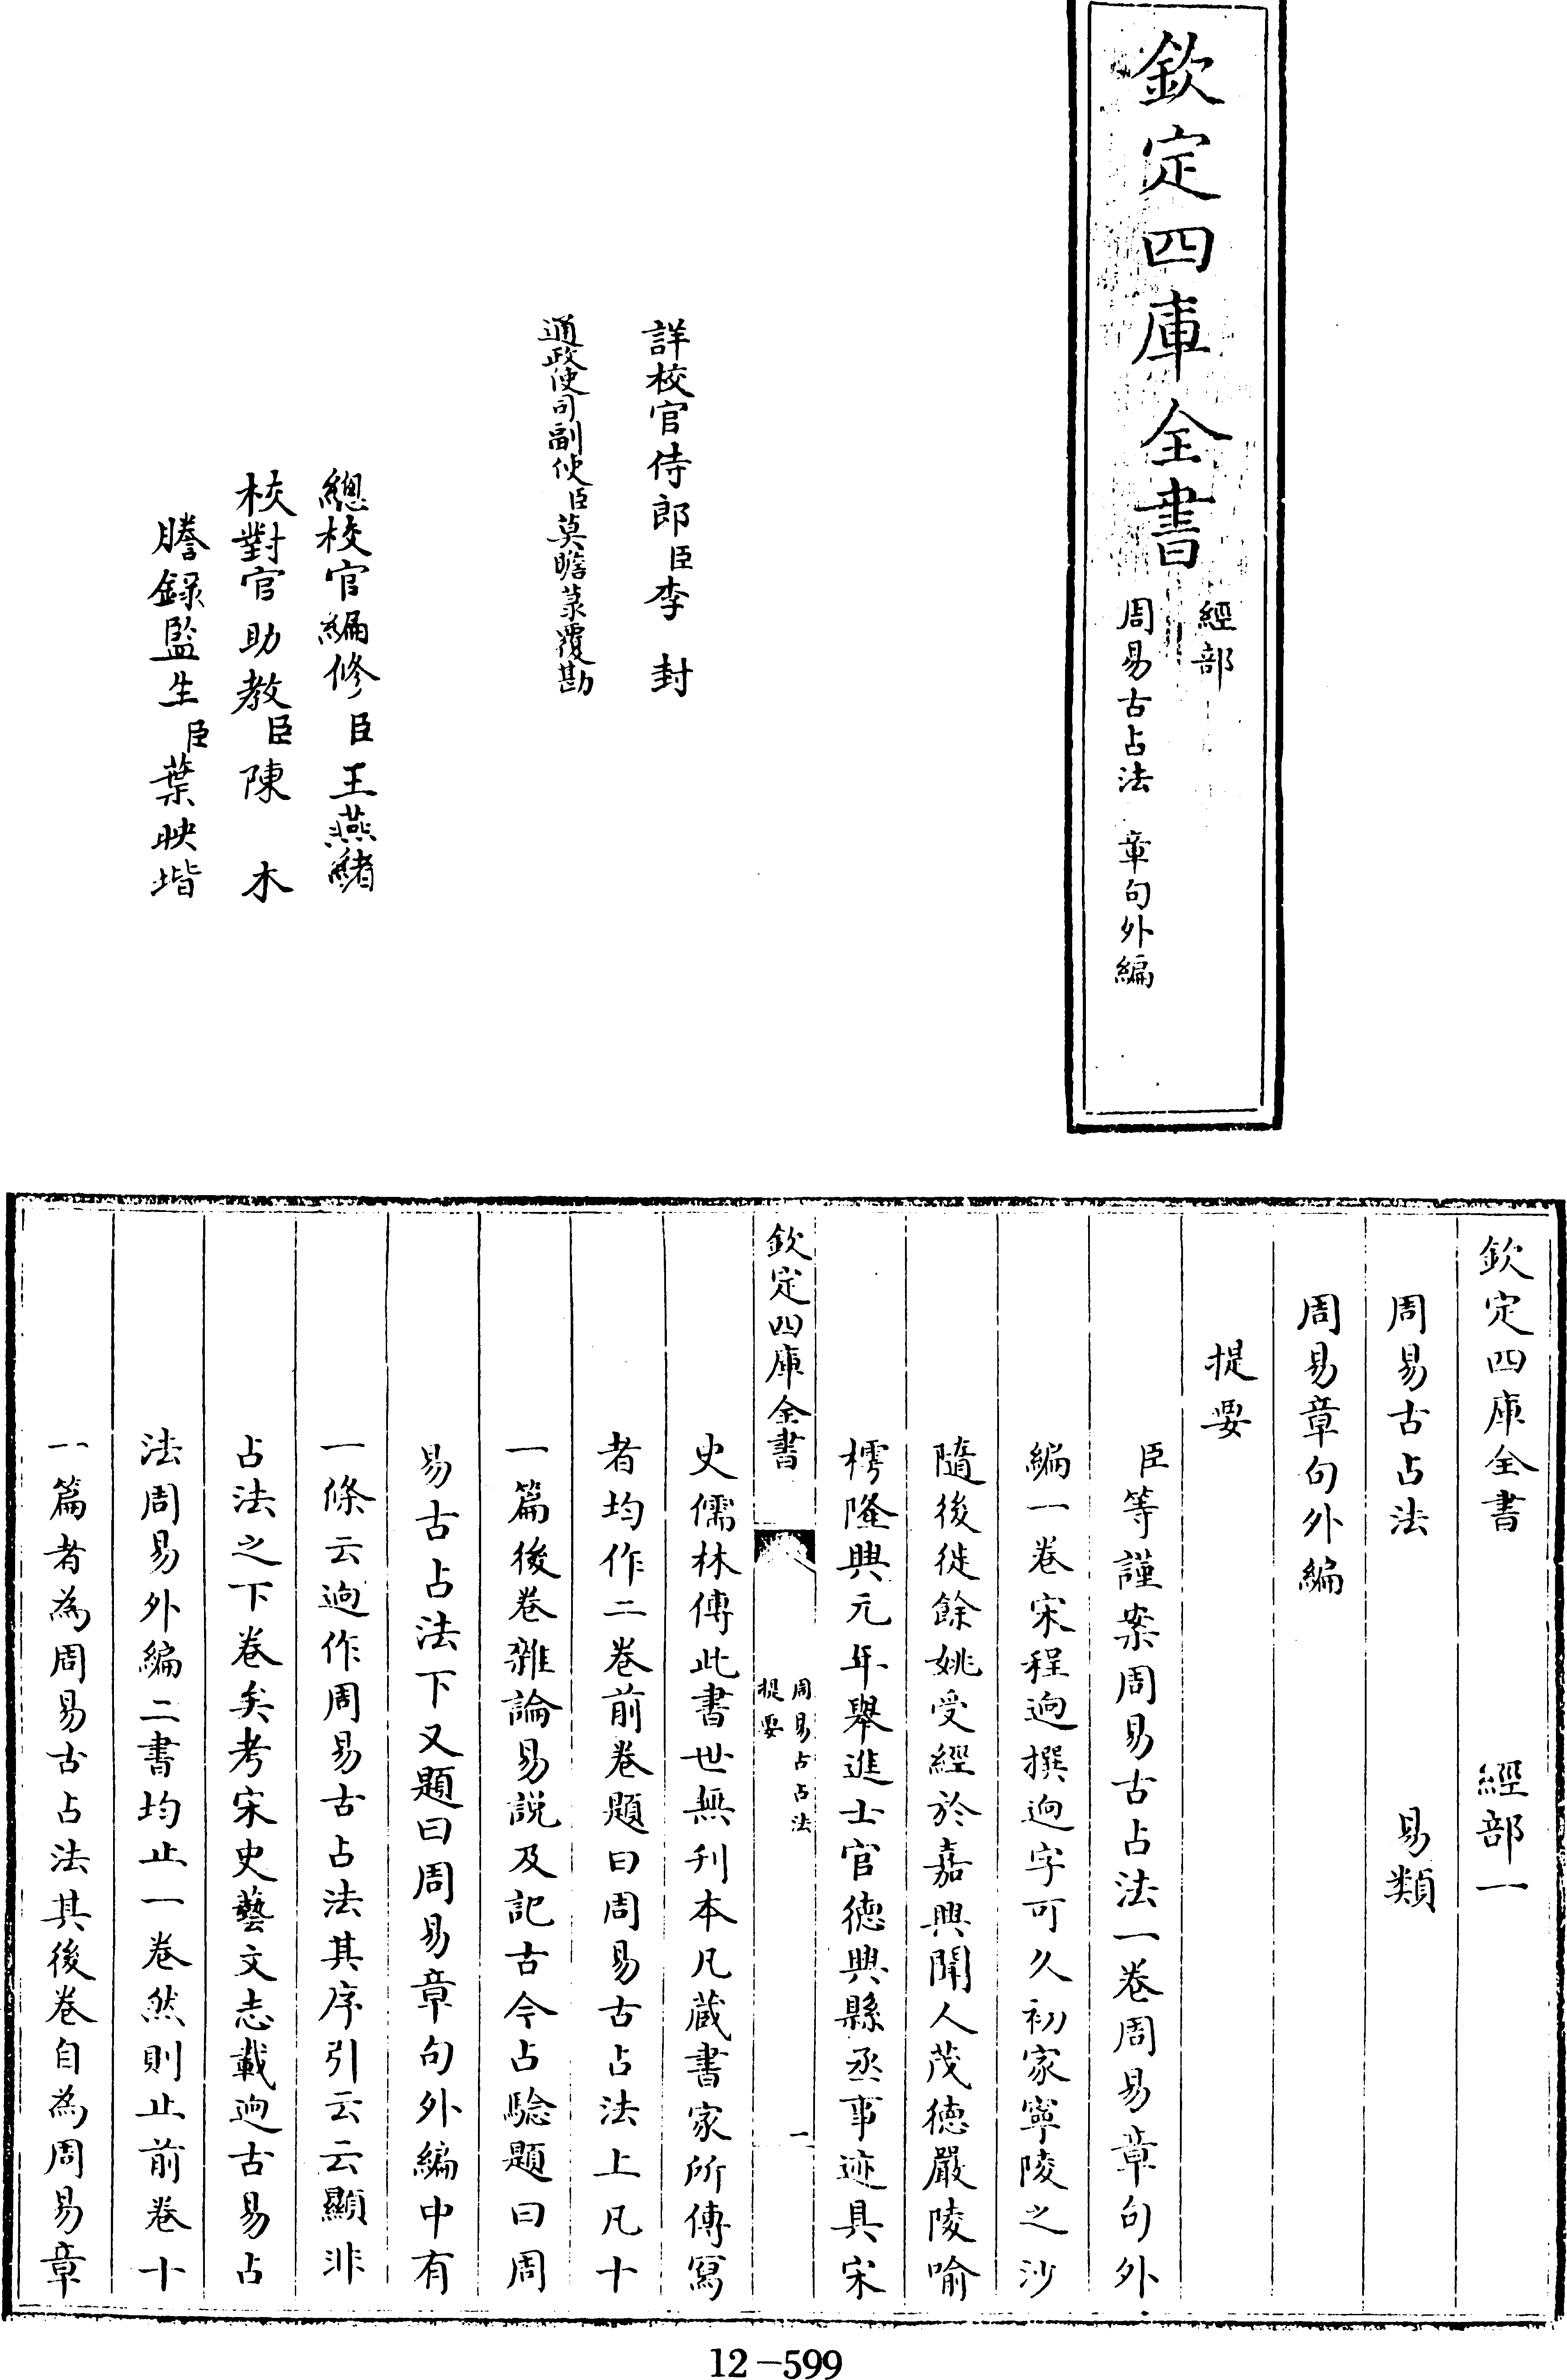 欽定四庫全書
經部
周易古占法 章句外編
詳校官侍郎臣李封
通政使司副使臣莫瞻菉覆勘
總校官編修臣王燕緒
校對官助教臣陳木
謄錄監生臣葉映堦
欽定四庫全書 經部一
周易古占法 易類
周易章句外編
提要
臣等謹案周易古占法一卷周易章句外
編一卷宋程逈撰逈字可久初家寧陵之沙
隨後徙餘姚受經於嘉興聞人茂德嚴陵喻
樗隆興元年舉進士官徳興縣丞事迹具宋
欽定四庫全書
周易占占法
提要
一
史儒林傳此書世無刊本凡蔵書家所傳寫
者均作二卷前卷題曰周易古占法上凡十
一篇後卷雜論易説及記古今占驗題曰周
易古占法下又題曰周易章句外編中有
一條云逈作周易古占法其序引云云顯非
占法之下卷矣考宋史藝文志載逈古易占
法周易外編二書均止一卷然則止前卷十
一篇者為周易古占法其後卷自為周易章
12-599